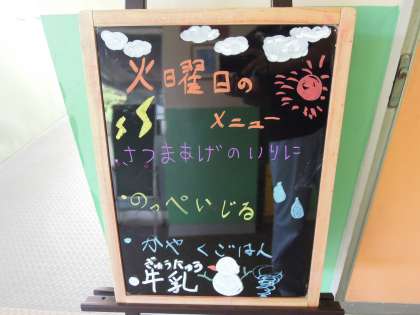 火曜日の
メニュー
・さつまあげのいりに
・のっぺいじる
・かやくごはん
ぎゅうにゅう
・牛乳